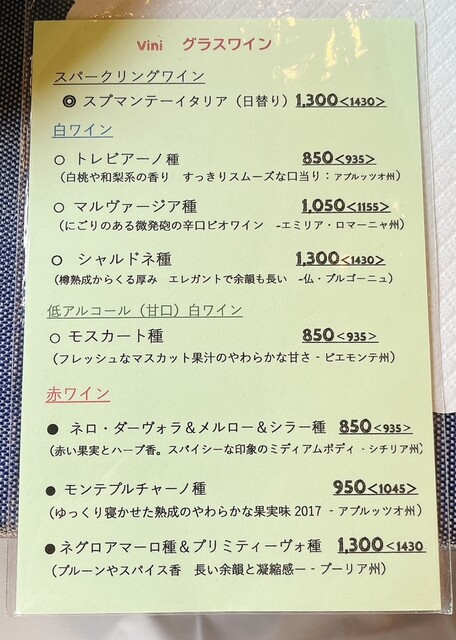 Vini グラスワイン
スパークリングワイン
◎ スプマンテーイタリア（日替り）1,300<1430>
白ワイン
○ トレビアーノ種 850<935>
（白桃や和梨系の香り すっきりスムーズな口当り：アブルッツオ州）
○ マルヴァージア種 1,050<1155>
（にごりのある微発砲の辛口ビオワイン -エミリア・ロマーニャ州）
○ シャルドネ種 1,300<1430>
（樽熟成からくる厚み エレガントで余韻も長い -仏・ブルゴーニュ）
低アルコール（甘口）白ワイン
○ モスカート種 850<935>
（フレッシュなマスカット果汁のやわらかな甘さ - ピエモンテ州）
赤ワイン
● ネロ・ダーヴォラ＆メルロー＆シラー種 850<935>
（赤い果実とハーブ香。スパイシーな印象のミディアムボディ - シチリア州）
● モンテプルチャーノ種 950<1045>
（ゆっくり寝かせた熟成のやわらかな果実味 2017 - アブルッツオ州）
● ネグロアマーロ種＆プリミティーヴォ種 1,300<1430
（プルーンやスパイス香 長い余韻と凝縮感－ - プーリア州）